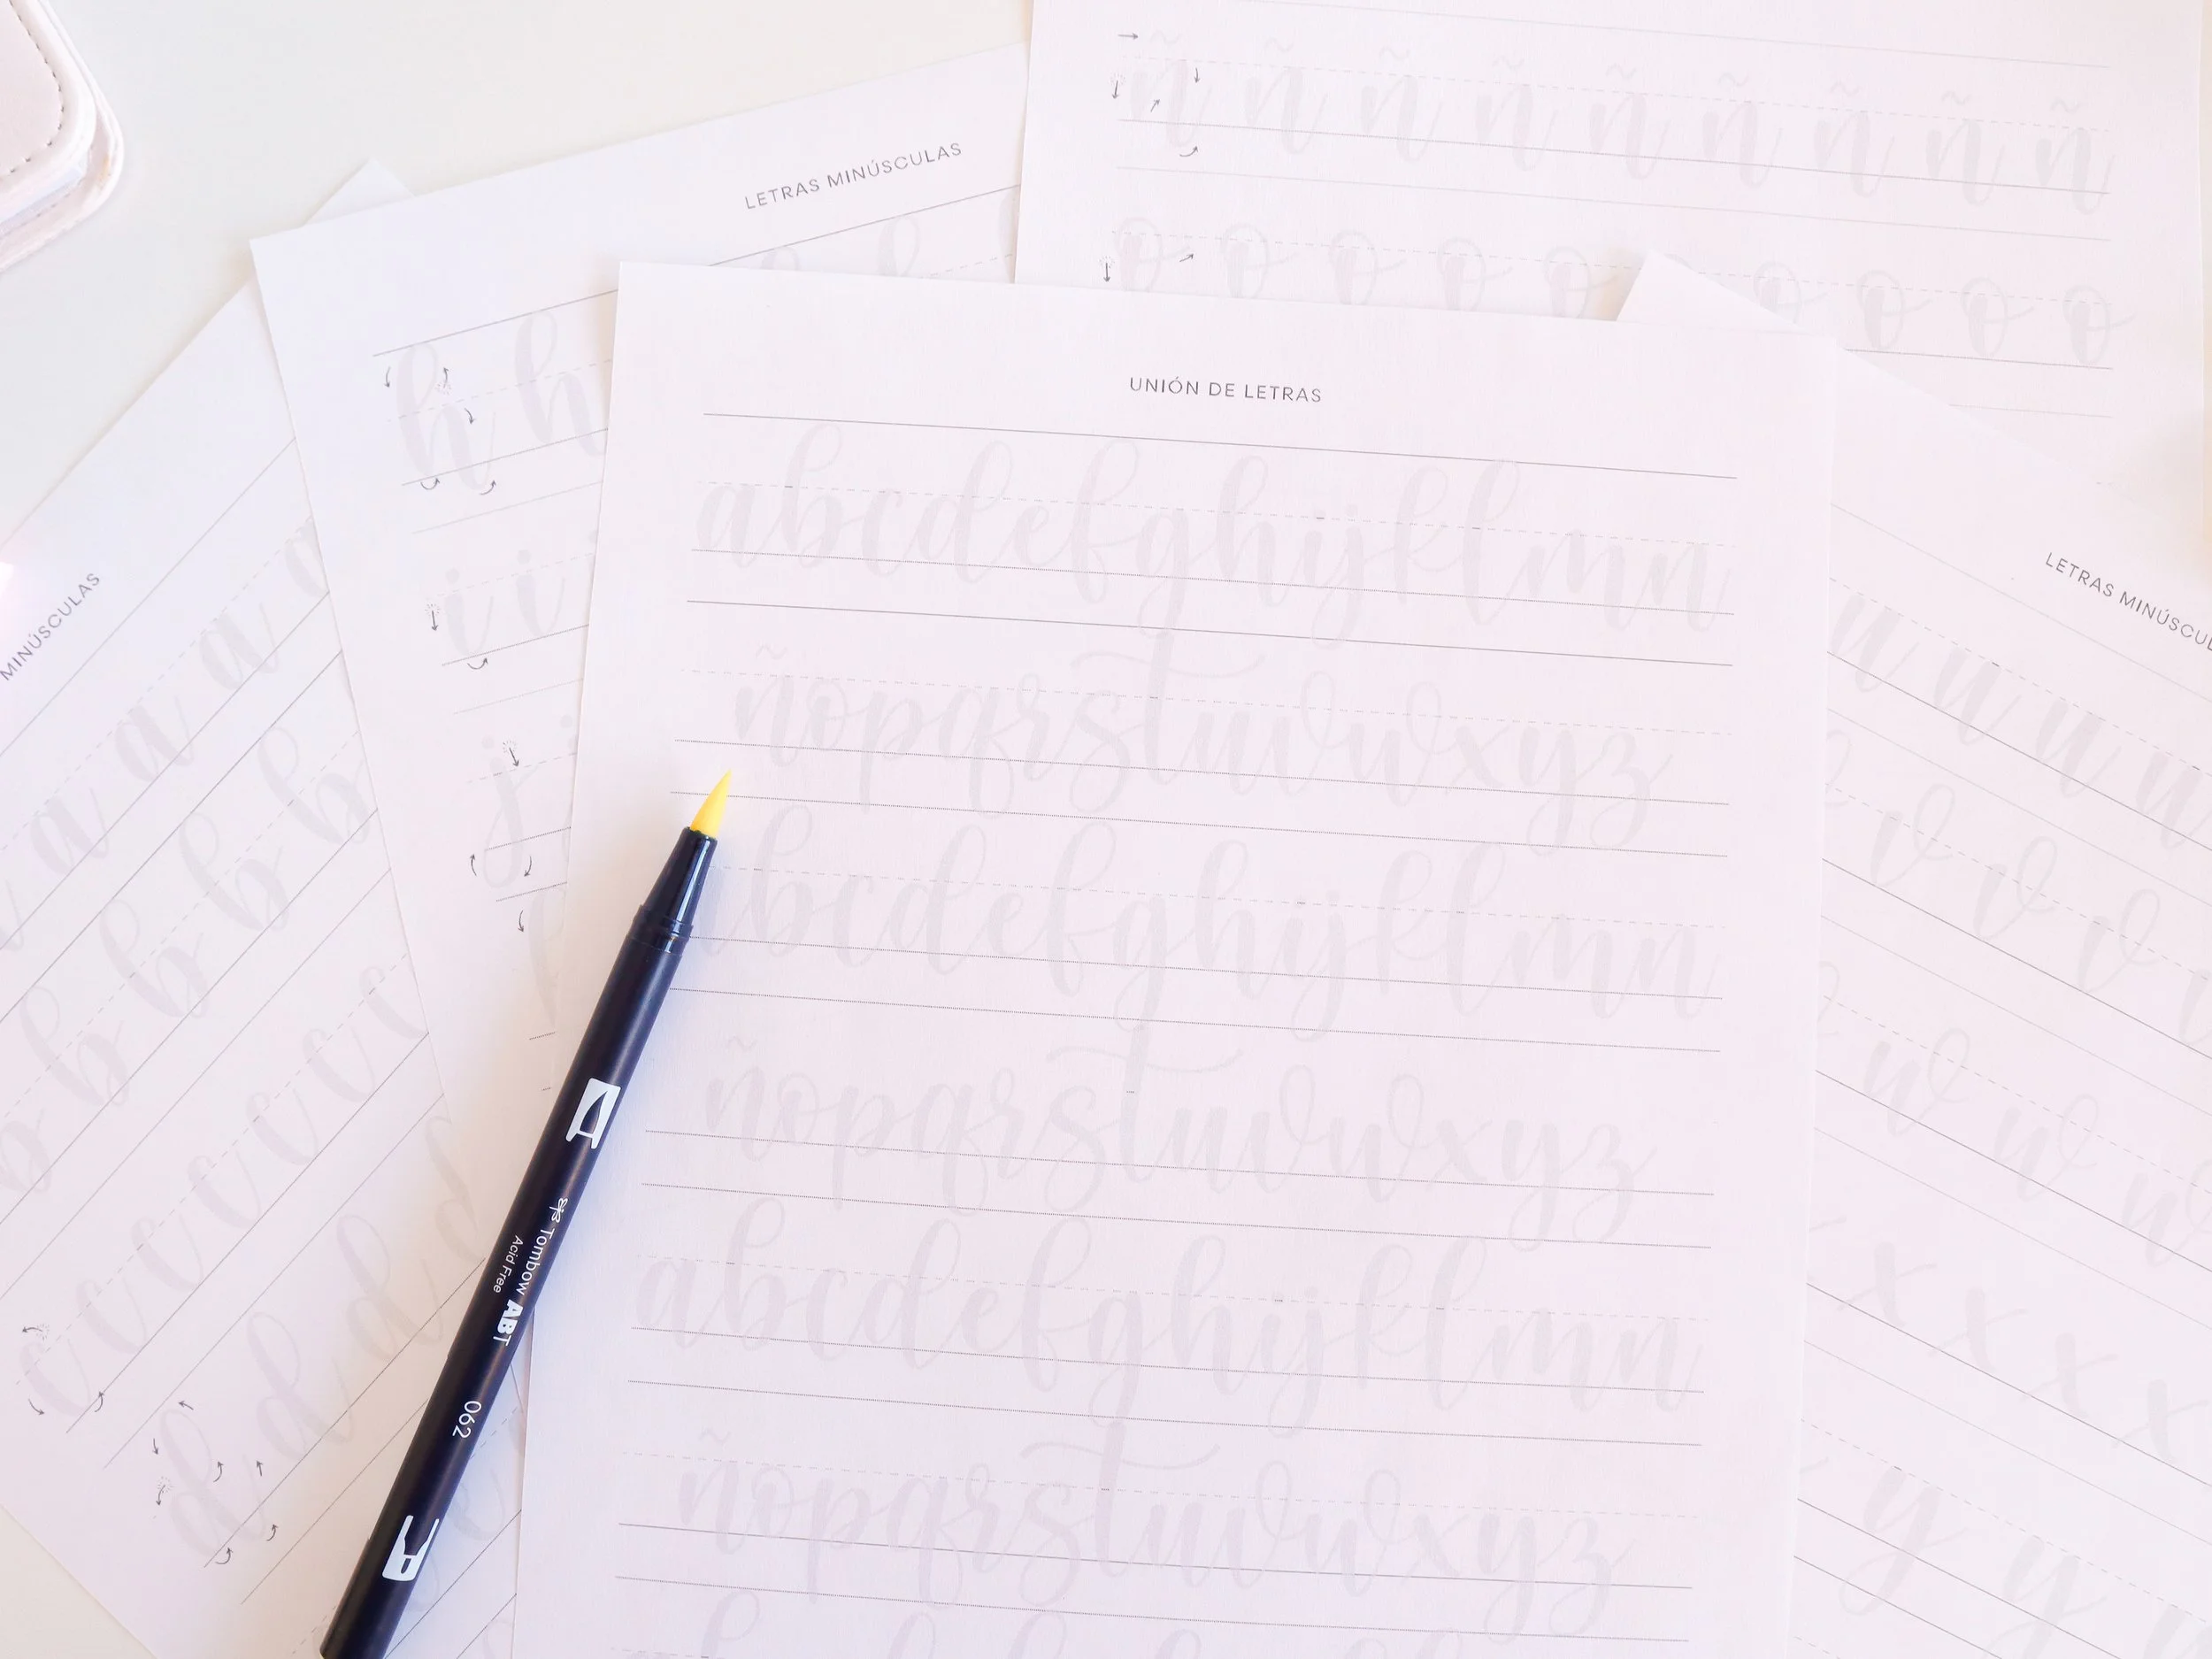 LETRAS MINÚSCULAS
h h
i i
j
ñ ñ ñ ñ ñ ñ ñ ñ ñ
o o o o o o o o o
UNIÓN DE LETRAS
abcdefghijklmn
ñopqrstuvwxyz
bcdefghijklmn
ñopqrstuvwxyz
abcdefghijklmn
ñopqrstuvwxyz
MINÚSCULAS
a a a a
b b b b b
c c c c c
d d d d
LETRAS MINÚSCU
u u u u
v v v
w w w
x x x x
y y
Tombow ABT
Acid Free
062